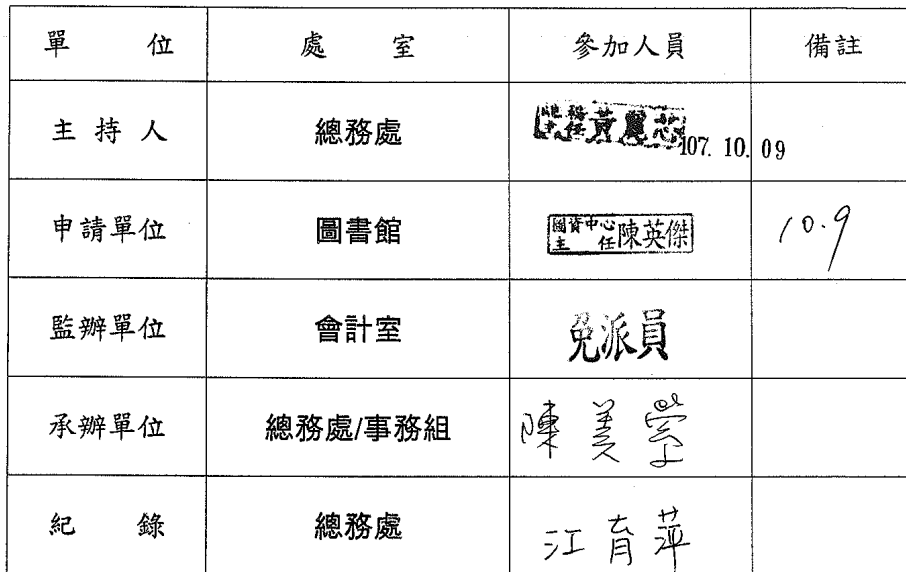 單 位 處 室 參加人員 備註
主 持 人 總務處 總務主任黃麗芯 107. 10. 09
申請單位 圖書館 圖資中心主任陳英傑 10.9
監辦單位 會計室 免派員
承辦單位 總務處/事務組 陳美學
紀 錄 總務處 江育萍